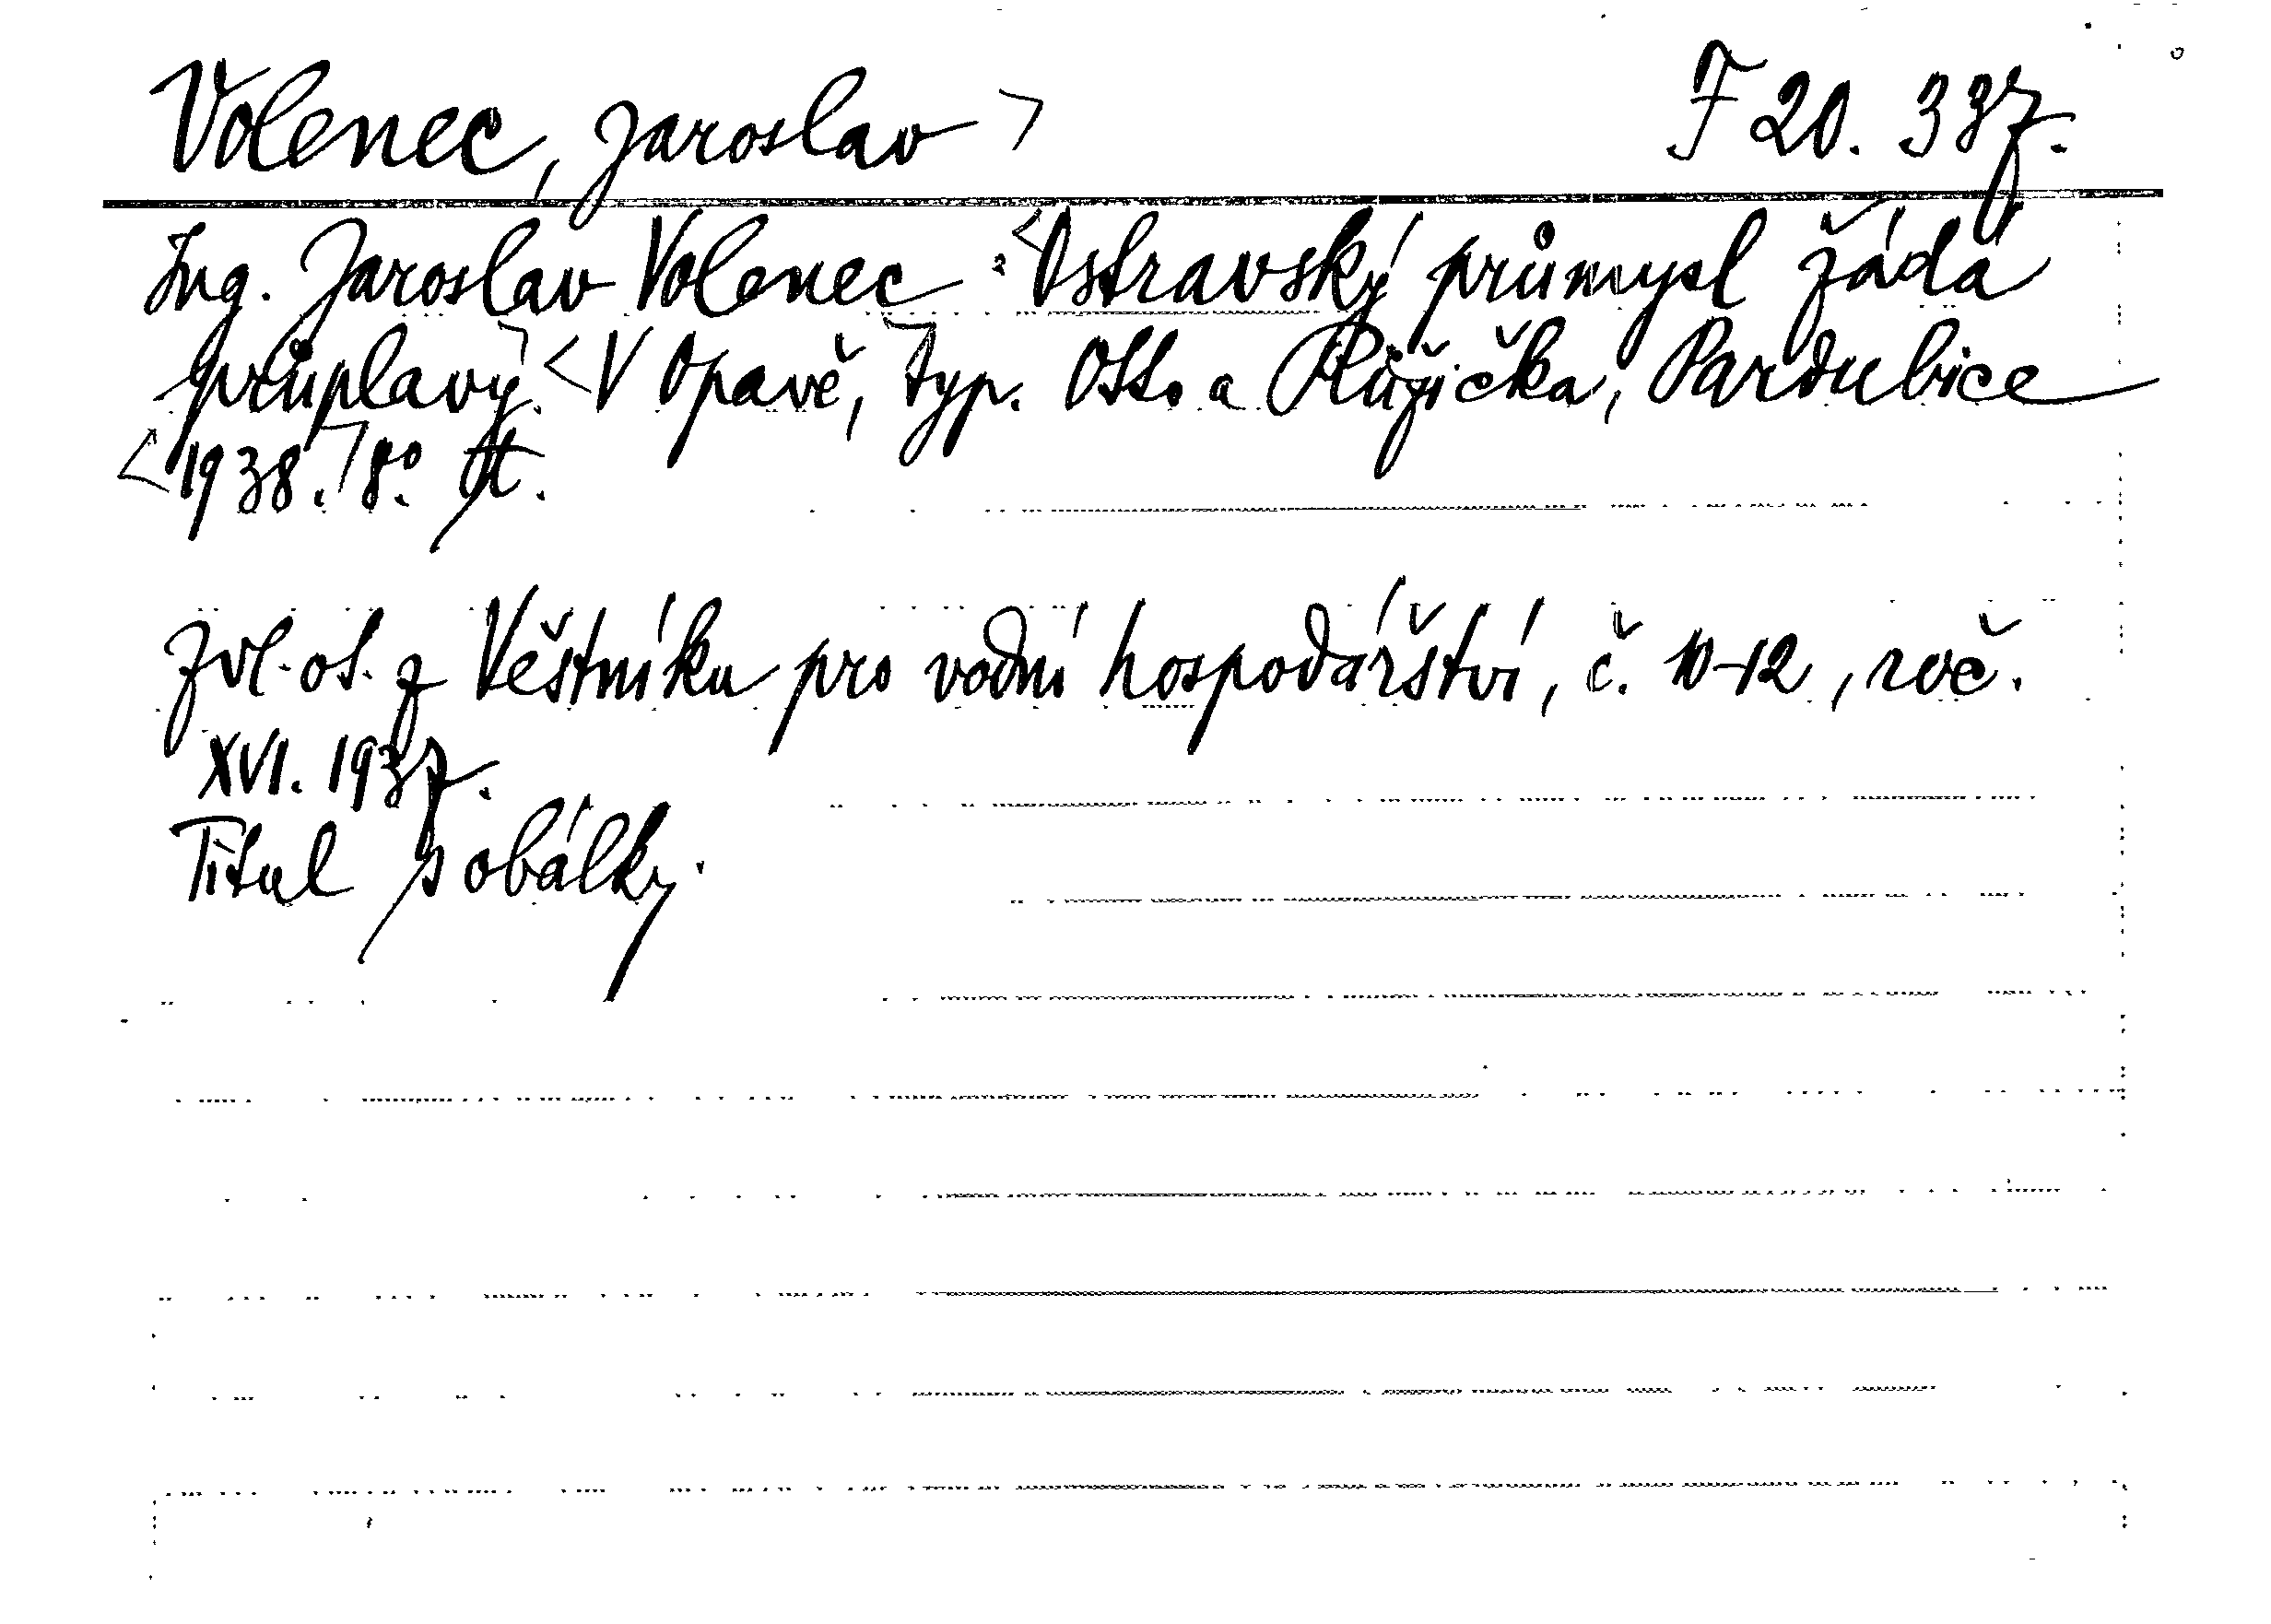 Volenec, Jaroslav > F 20.337.
Ing. Jaroslav Volenec : <Ostravský průmysl žádá
průplavy.> <V Opavě,> Typ. Otto a Růžička, Pardubice
<1938.> 8°. tt.
Zvl. ot. z Věstníku pro vodní hospodářství, č. 10-12, roč.
XVI. 1937.
Titul s obálky.